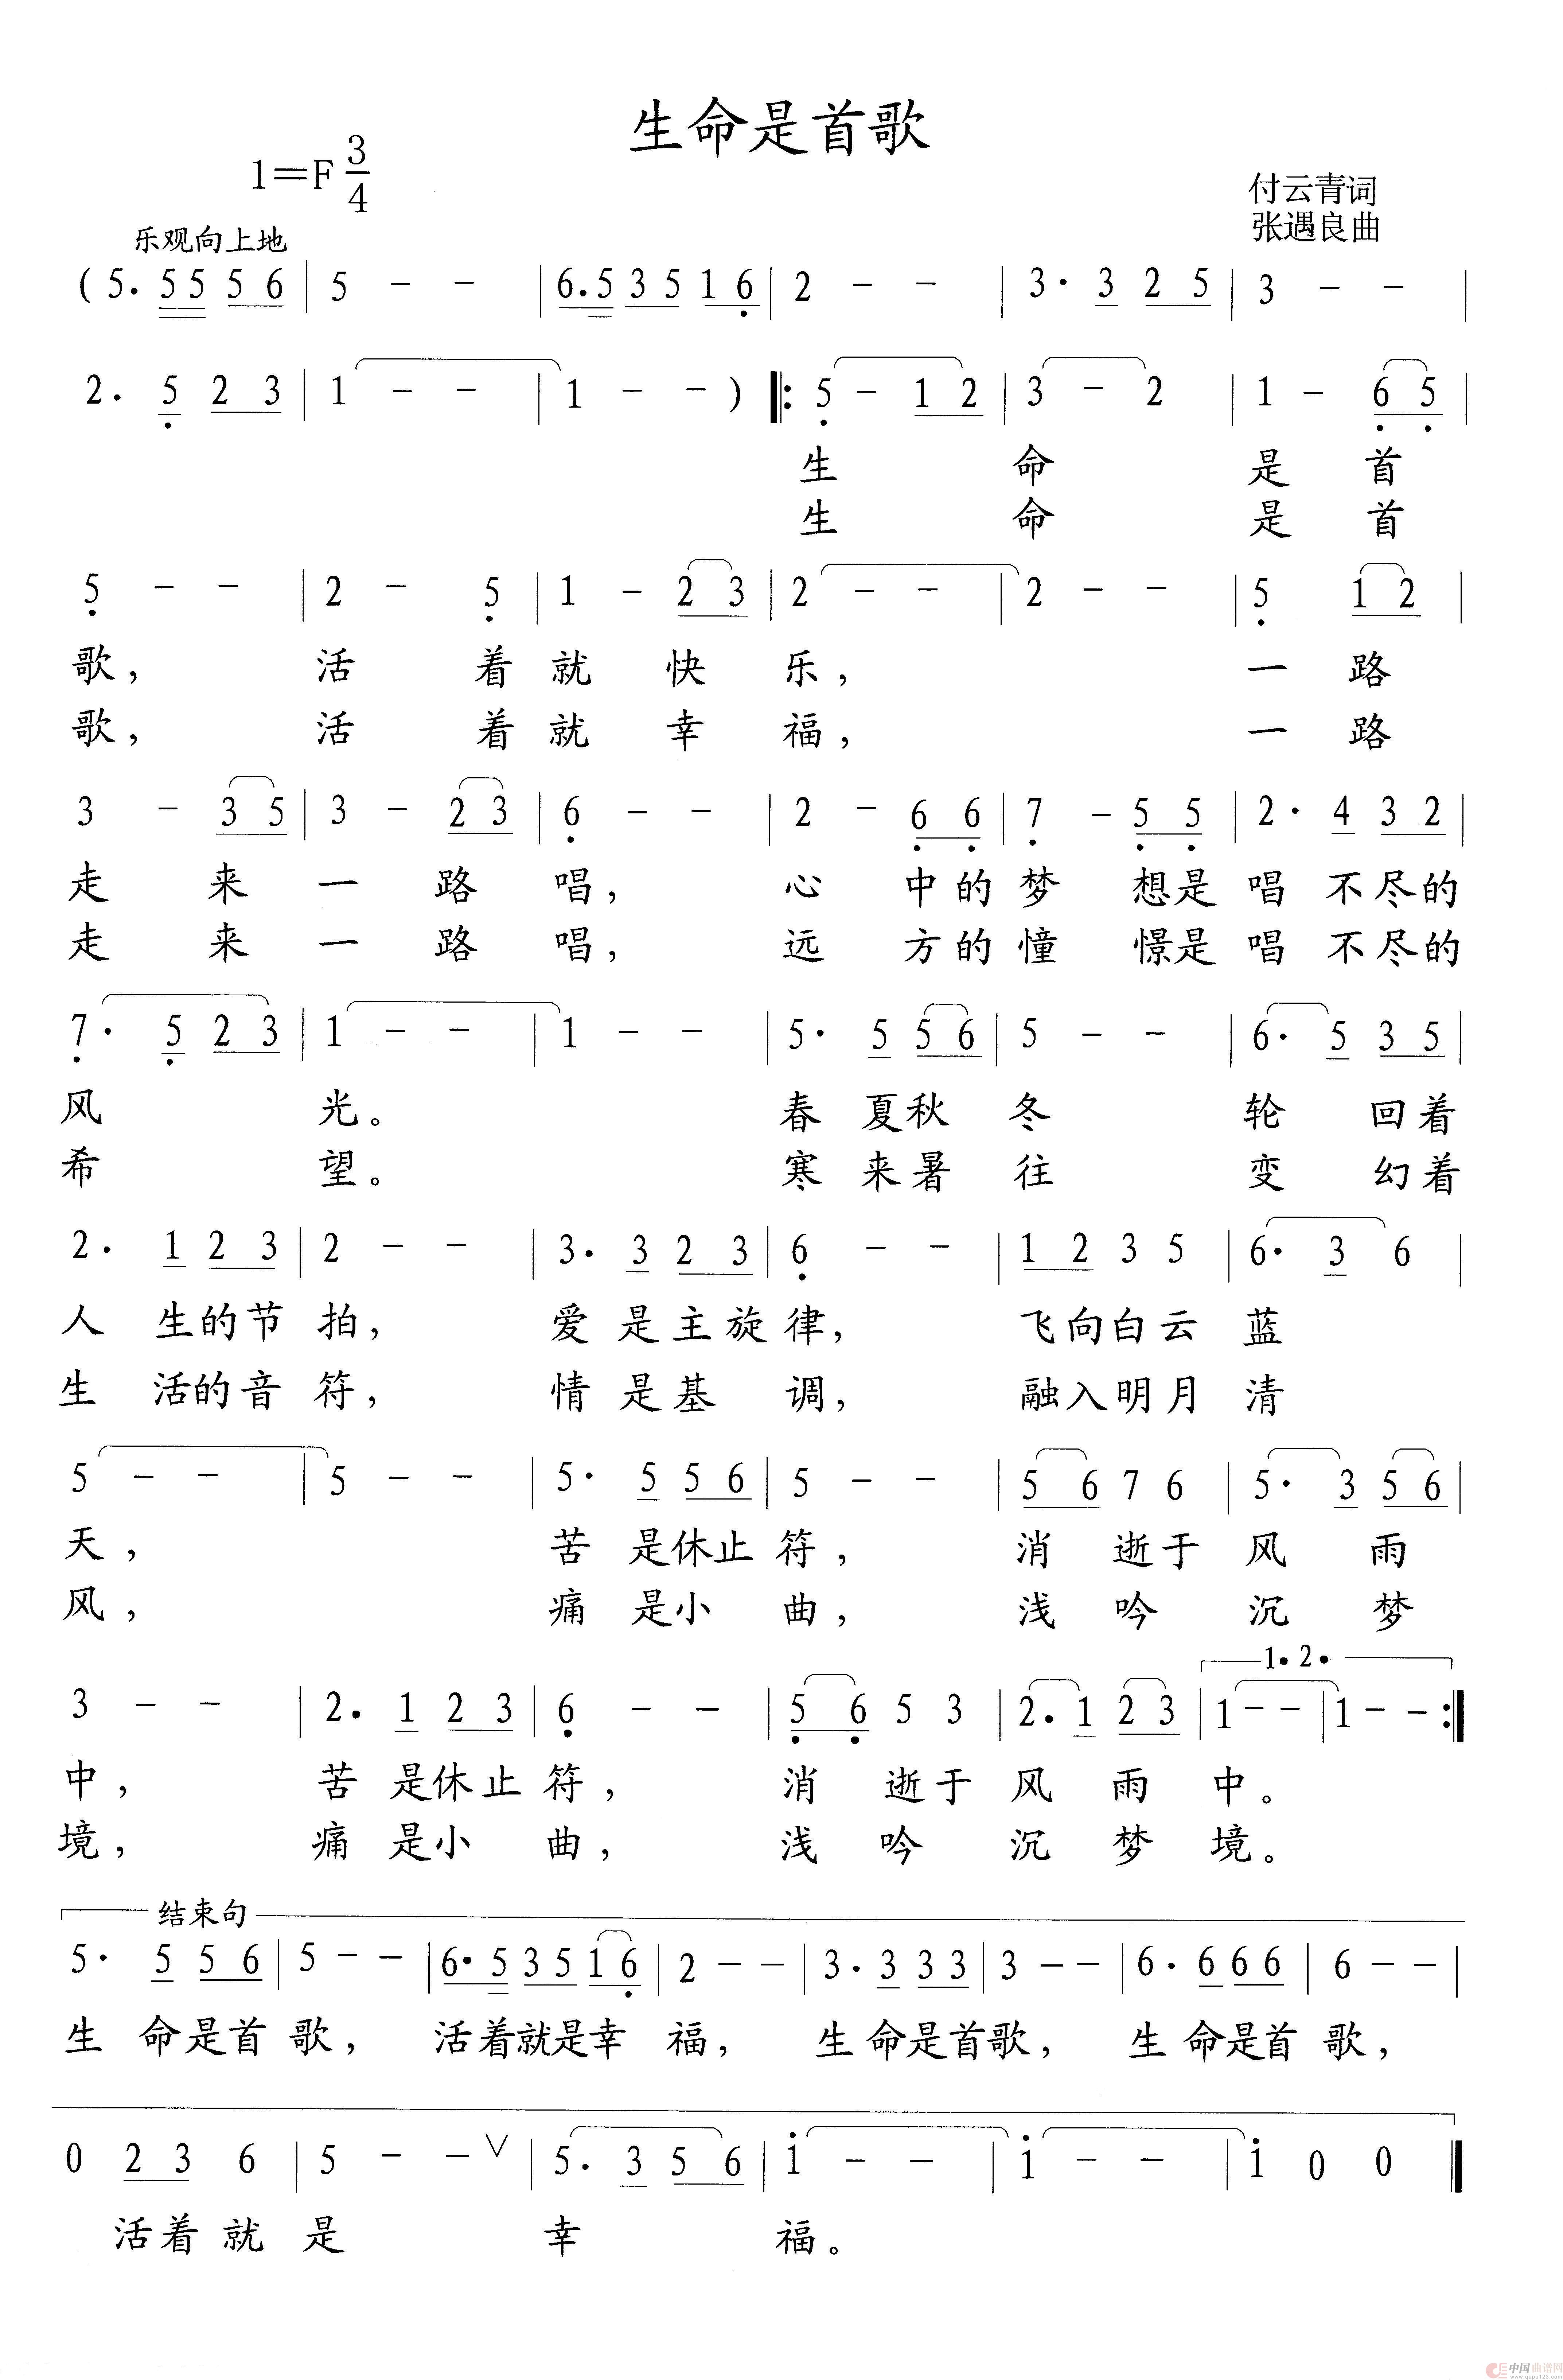 生命是首歌
1=F 3/4
付云青词
张遇良曲
乐观向上地
( 5. 5 5 5 6 | 5 - - | 6. 5 3 5 1 6 | 2 - - | 3· 3 2 5 | 3 - - |
2. 5 2 3 | 1 - - | 1 - - ) ‖: 5 - 1 2 | 3 - 2 | 1 - 6 5 |
生 命 是 首
生 命 是 首
5 - - | 2 - 5 | 1 - 2 3 | 2 - - | 2 - - | 5 1 2 |
歌, 活 着 就 快 乐, 一 路
歌, 活 着 就 幸 福, 一 路
3 - 3 5 | 3 - 2 3 | 6 - - | 2 - 6 6 | 7 - 5 5 | 2· 4 3 2 |
走 来 一 路 唱, 心 中 的 梦 想是 唱 不尽的
走 来 一 路 唱, 远 方 的 憧 憬是 唱 不尽的
7· 5 2 3 | 1 - - | 1 - - | 5· 5 5 6 | 5 - - | 6· 5 3 5 |
风 光。 春 夏秋 冬 轮 回着
希 望。 寒 来暑 往 变 幻着
2· 1 2 3 | 2 - - | 3· 3 2 3 | 6 - - | 1 2 3 5 | 6· 3 6 |
人 生的节 拍, 爱 是主旋 律, 飞向白云 蓝
生 活的音 符, 情 是基 调, 融入明月 清
5 - - | 5 - - | 5· 5 5 6 | 5 - - | 5 6 7 6 | 5· 3 5 6 |
天, 苦 是休止 符, 消 逝于 风 雨
风, 痛 是小 曲, 浅 吟 沉 梦
1· 2·
3 - - | 2. 1 2 3 | 6 - - | 5 6 5 3 | 2. 1 2 3 | 1 - - | 1 - - :‖
中, 苦 是休止 符, 消 逝于 风 雨 中。
境, 痛 是小 曲, 浅 吟 沉 梦 境。
结束句
5· 5 5 6 | 5 - - | 6· 5 3 5 1 6 | 2 - - | 3· 3 3 3 | 3 - - | 6· 6 6 6 | 6 - - |
生 命是首 歌, 活着就是幸 福, 生 命是首歌, 生 命是首 歌,
0 2 3 6 | 5 - - ∨ | 5. 3 5 6 | 1 - - | 1 - - | 1 0 0 ‖
活着 就 是 幸 福。
中国曲谱网
www.qupu123.com